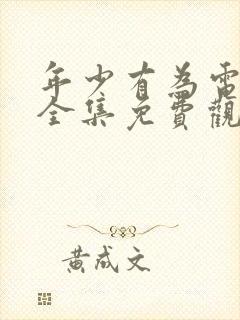 年少有為電
全集免費觀
黃成文